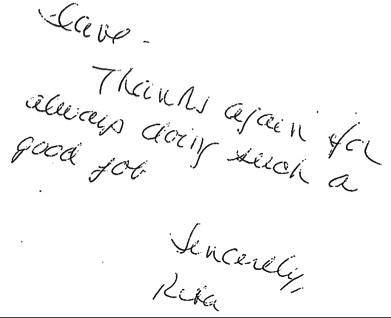 Dave -
Thanks again for
always doing such a
good job
Sincerely,
Rita